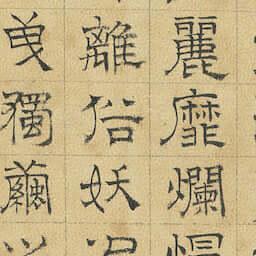 麗靡爛
離俗妖
曳獨繭